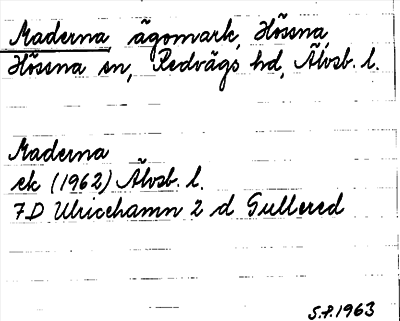 Maderna, ägomark, Hössna,
Hössna sn, Redvägs hd, Älvsb. l.
Maderna
ek (1962) Älvsb. l.
7D Ulricehamn 2 d Gullered
S.F. 1963